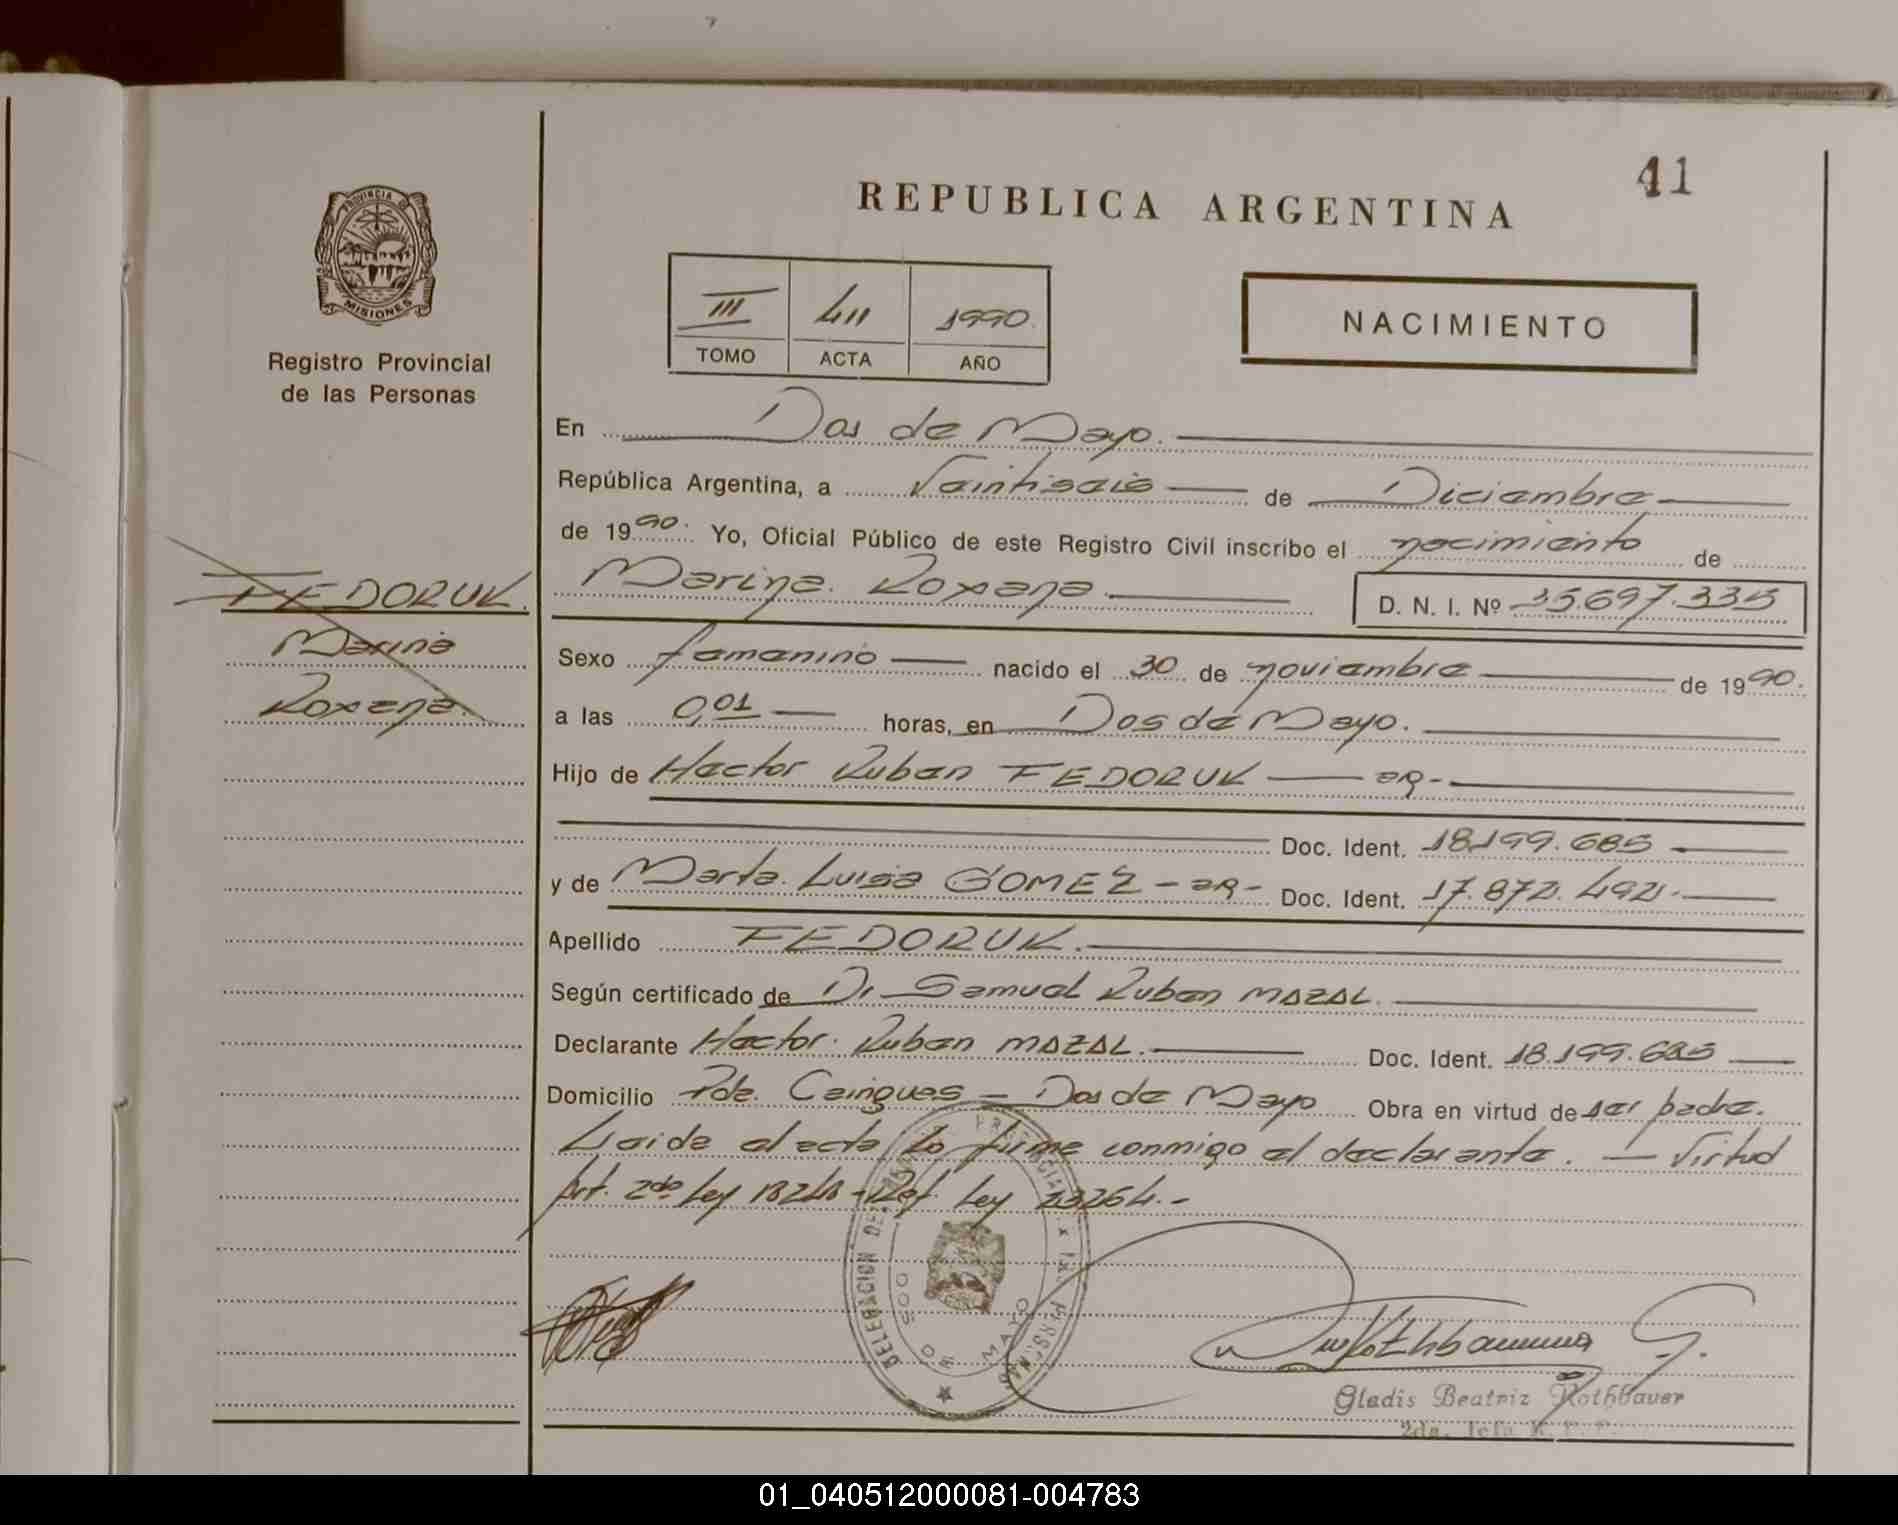 41
REPUBLICA ARGENTINA
PROVINCIA DE
MISIONES
Registro Provincial
de las Personas
III 411 1990
TOMO ACTA AÑO
NACIMIENTO
En Dos de Mayo.
República Argentina, a Veintiseis de Diciembre
de 1990. Yo, Oficial Público de este Registro Civil inscribo el nacimiento de
Marina Roxana. D. N. I. Nº 35.697.335
FEDORUK.
Marina
Roxana.
Sexo femenino nacido el 30 de noviembre de 1990.
a las 0,01 horas, en Dos de Mayo.
Hijo de Hector Ruben FEDORUK — ar-
Doc. Ident. 18.199.685
y de Marta Luisa GOMEZ - ar- Doc. Ident. 17.872.492.
Apellido FEDORUK.
Según certificado de Dr Samuel Ruben MAZAL.
Declarante Hector Ruben MAZAL. Doc. Ident. 18.199.685
Domicilio Pde. Cainguas - Dos de Mayo Obra en virtud de ser padre.
Leida el acta lo firme conmigo el declarante. — Virtud
Art. 2do Ley 18248 - Ref. Ley 23264.-
DELEGACION DEL
DOS DE MAYO
Rothbauer G.
Gladis Beatriz Rothbauer
2da. Jefa R. P. P.
01_040512000081-004783